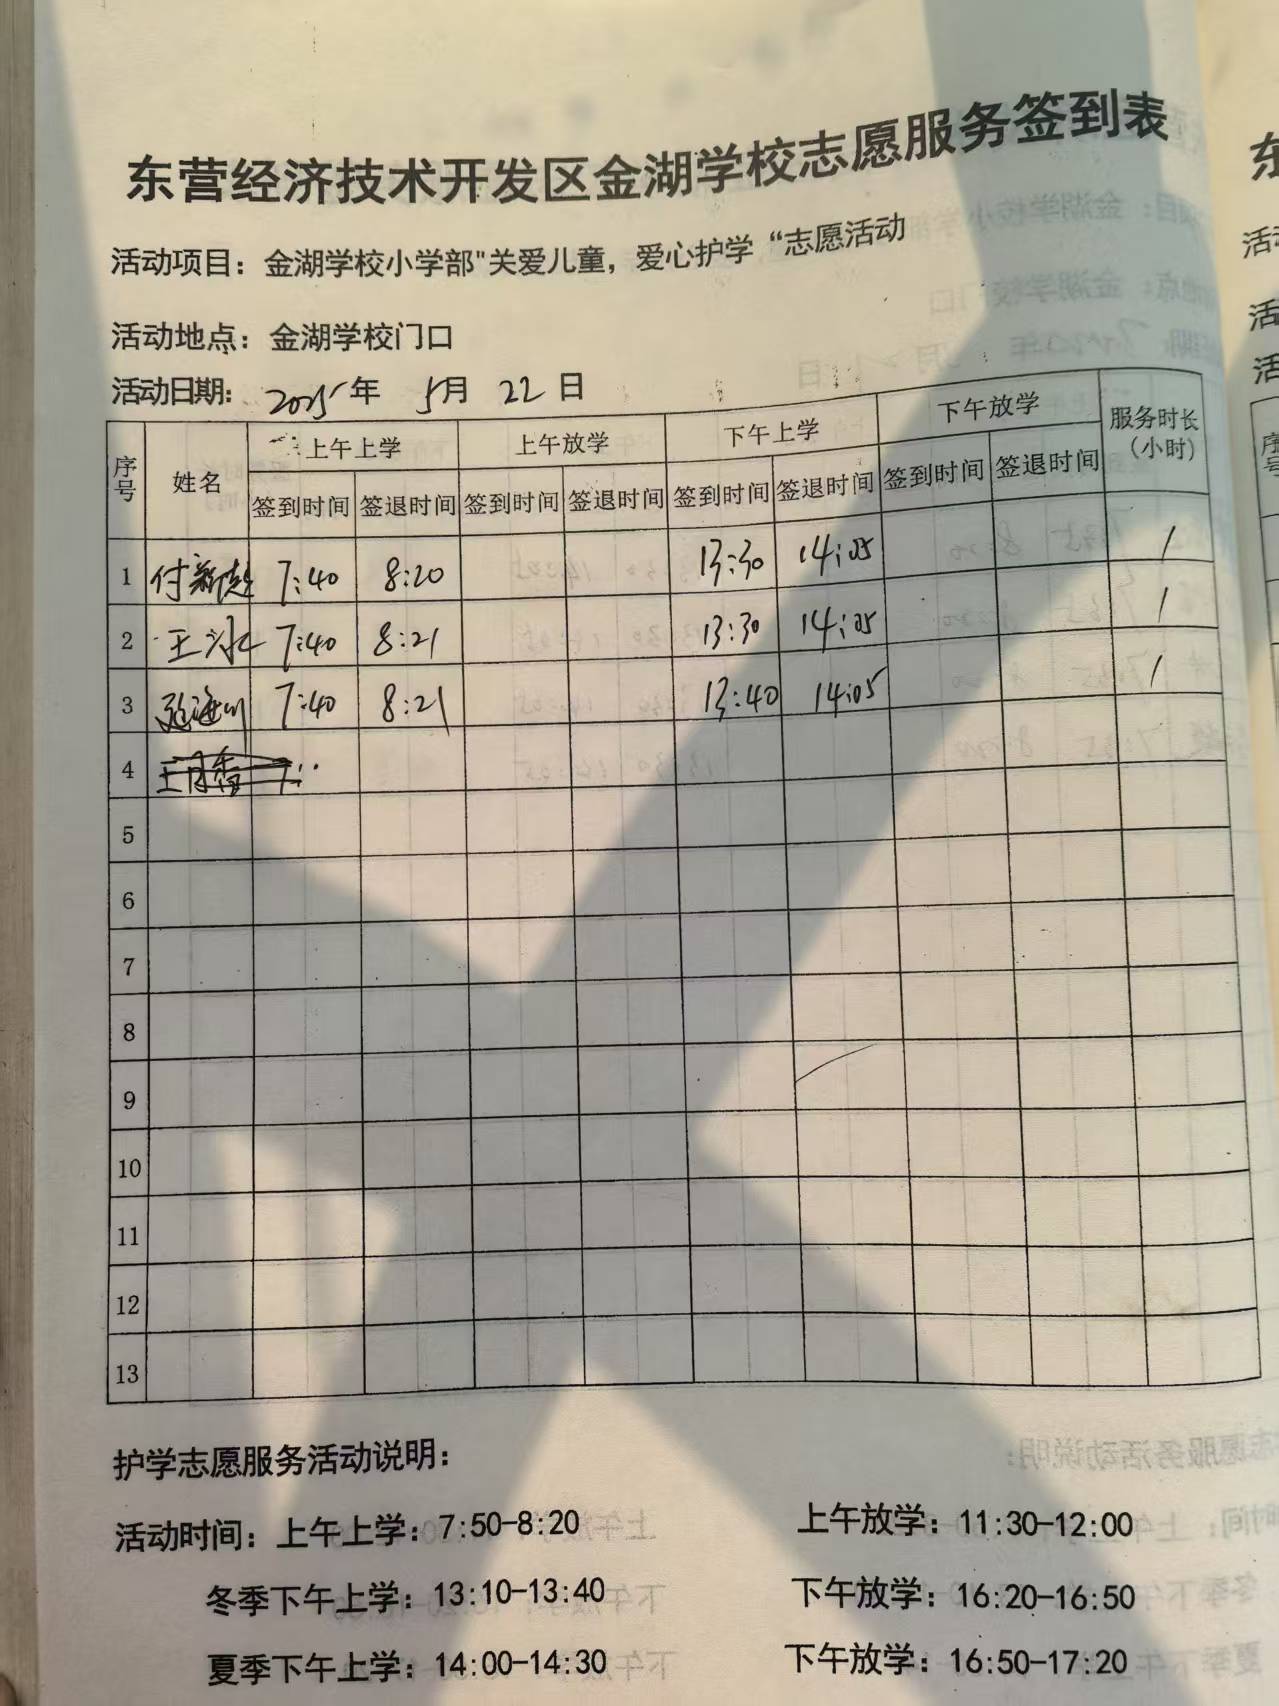 东营经济技术开发区金湖学校志愿服务签到表
活动项目：金湖学校小学部"关爱儿童，爱心护学“志愿活动
活动地点：金湖学校门口
活动日期：2025年 5月 22日
序号 姓名 上午上学 上午放学 下午上学 下午放学 服务时长（小时）
签到时间 签退时间 签到时间 签退时间 签到时间 签退时间 签到时间 签退时间
1 付新 7:40 8:20 13:30 14:05 1
2 王 7:40 8:21 13:30 14:05 1
3 7:40 8:21 13:40 14:05 1
4 王月香
5
6
7
8
9
10
11
12
13
护学志愿服务活动说明：
活动时间：上午上学：7:50-8:20 上午放学：11:30-12:00
冬季下午上学：13:10-13:40 下午放学：16:20-16:50
夏季下午上学：14:00-14:30 下午放学：16:50-17:20
东
活
活
活
序号